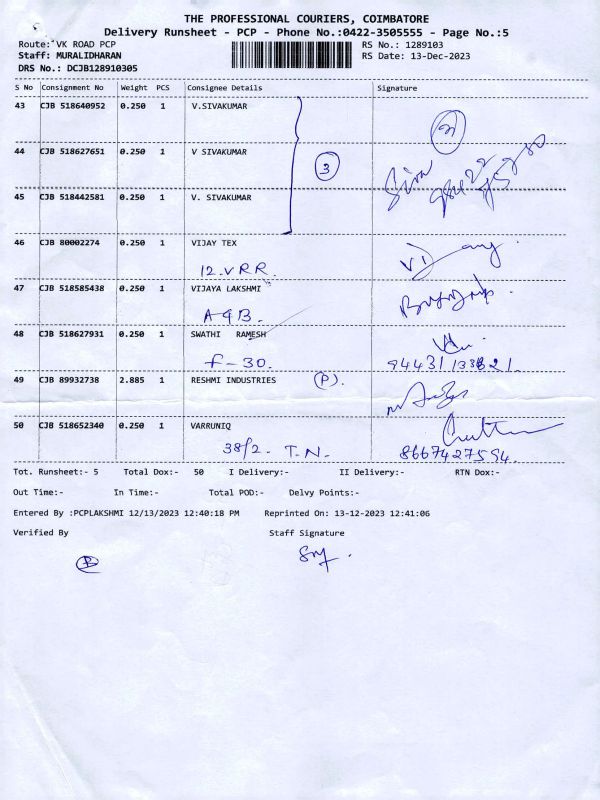 THE PROFESSIONAL COURIERS, COIMBATORE
Delivery Runsheet - PCP - Phone No.:0422-3505555 - Page No.:5
Route: VK ROAD PCP RS No.: 1289103
Staff: MURALIDHARAN RS Date: 13-Dec-2023
DRS No.: DCJB128910305
S No Consignment No Weight PCS Consignee Details Signature
43 CJB 518640952 0.250 1 V.SIVAKUMAR
44 CJB 518627651 0.250 1 V SIVAKUMAR
3
Siva
45 CJB 518442581 0.250 1 V. SIVAKUMAR
46 CJB 80002274 0.250 1 VIJAY TEX
12.VRR.
47 CJB 518585438 0.250 1 VIJAYA LAKSHMI
A9B.
48 CJB 518627931 0.250 1 SWATHI RAMESH
f-30.
49 CJB 89932738 2.885 1 RESHMI INDUSTRIES (P).
50 CJB 518652340 0.250 1 VARRUNIQ
38/2. T.N. 8667427594.
Tot. Runsheet:- 5 Total Dox:- 50 I Delivery:- II Delivery:- RTN Dox:-
Out Time:- In Time:- Total POD:- Delvy Points:-
Entered By :PCPLAKSHMI 12/13/2023 12:40:18 PM Reprinted On: 13-12-2023 12:41:06
Verified By Staff Signature